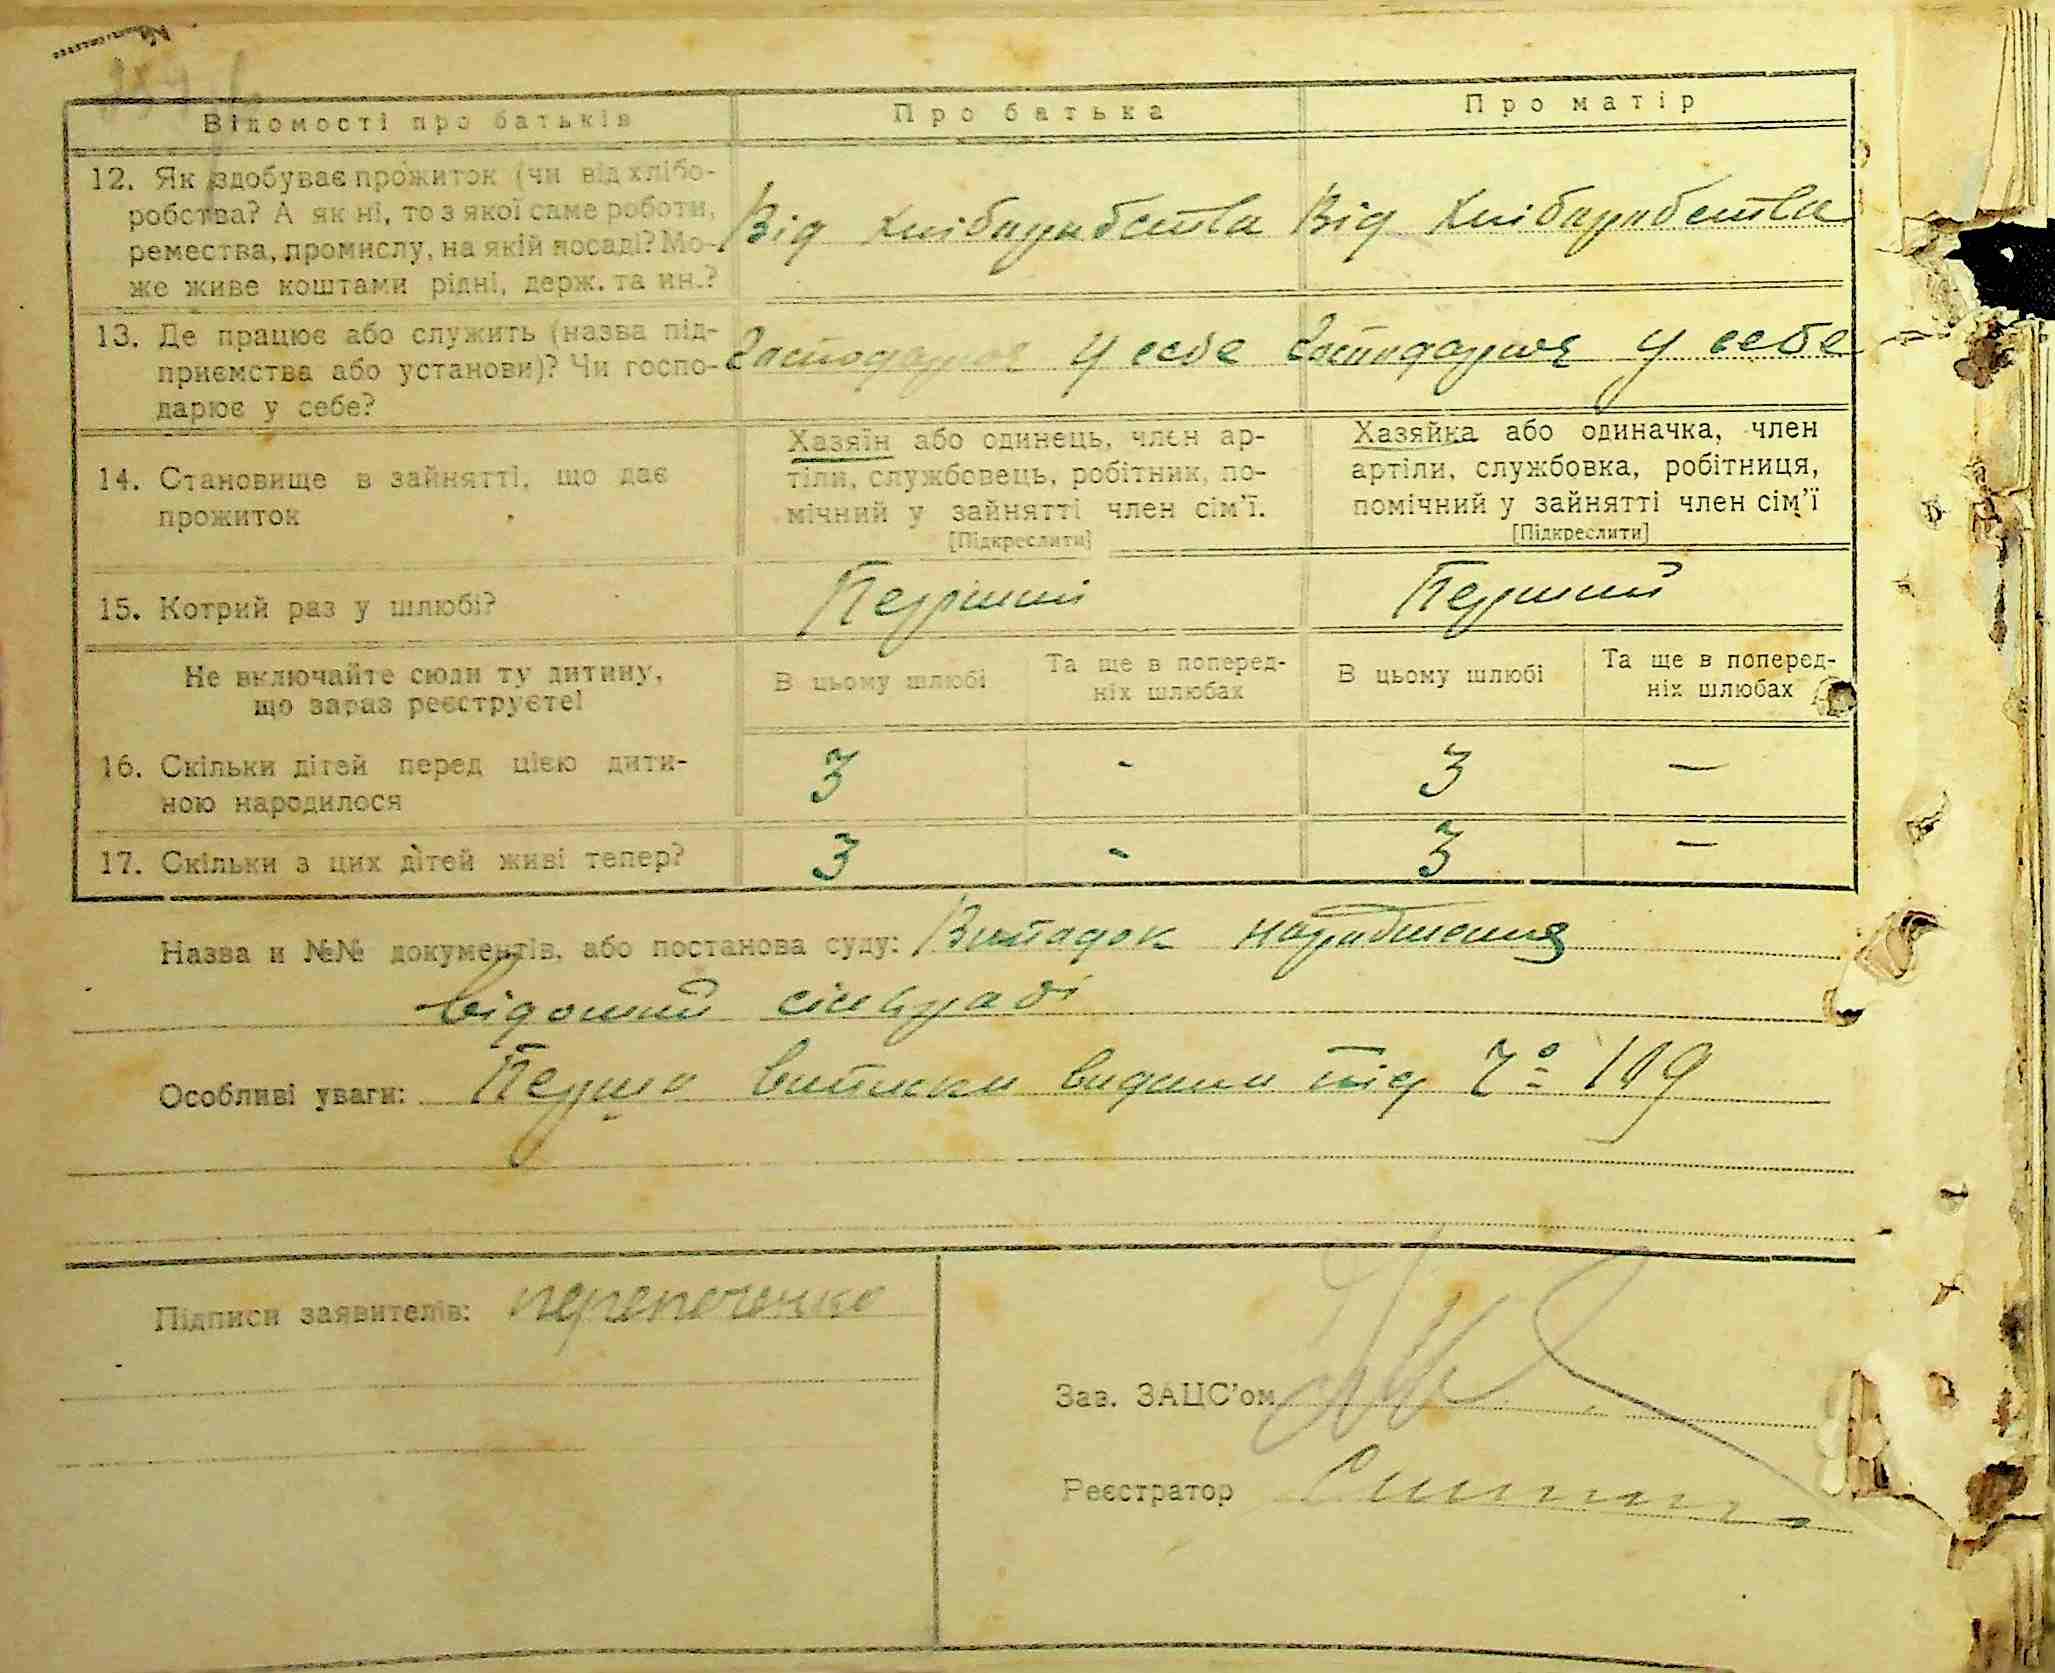 Відомості про батьків
Про батька
Про матір
12. Як здобуває прожиток (чи від хлібо-
робства? А як ні, то з якої саме роботи,
ремества, промислу, на якій посаді? Мо-
же живе коштами рідні, держ. та ин.?
Від хлібаробства
Від хлібаробства
13. Де працює або служить (назва під-
приємства або установи)? Чи госпо-
дарює у себе?
Господарює у себе
Господарює у себе
14. Становище в зайнятті, що дає
прожиток
Хазяїн або одинець, член ар-
тіли, службовець, робітник, по-
мічний у зайнятті член сім'ї.
[Підкреслити]
Хазяйка або одиначка, член
артіли, службовка, робітниця,
помічний у зайнятті член сім'ї
[Підкреслити]
15. Котрий раз у шлюбі?
Перший
Перший
Не включайте сюди ту дитину,
що зараз реєструєте!
В цьому шлюбі
Та ще в поперед-
ніх шлюбах
В цьому шлюбі
Та ще в поперед-
ніх шлюбах
16. Скільки дітей перед цією дити-
ною народилося
3 - 3 —
17. Скільки з цих дітей живі тепер?
3 - 3 —
Назва и №№ документів, або постанова суду: Випадок народження
відомий сільраді
Особливі уваги: Перша виписка видана під № 109
Підписи заявителів: перепеченко
Зав. ЗАЦС'ом
Реєстратор